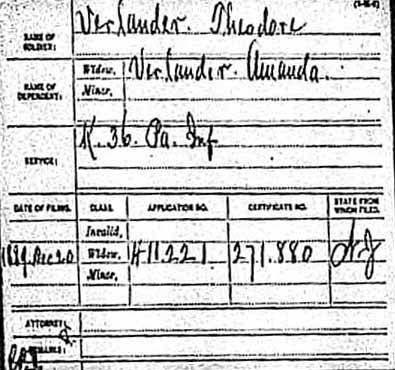 NAME OF SOLDIER: VerLander. Theodore
NAME OF DEPENDENT: Widow, VerLander. Amanda.
Minor,
SERVICE: K. 36. Pa. Inf
DATE OF FILING. CLASS. APPLICATION NO. CERTIFICATE NO. STATE FROM WHICH FILED.
Invalid,
1889 Dec 20 Widow, 411.221 271.880 N.J
Minor,
ATTORNEY:
REMARKS: